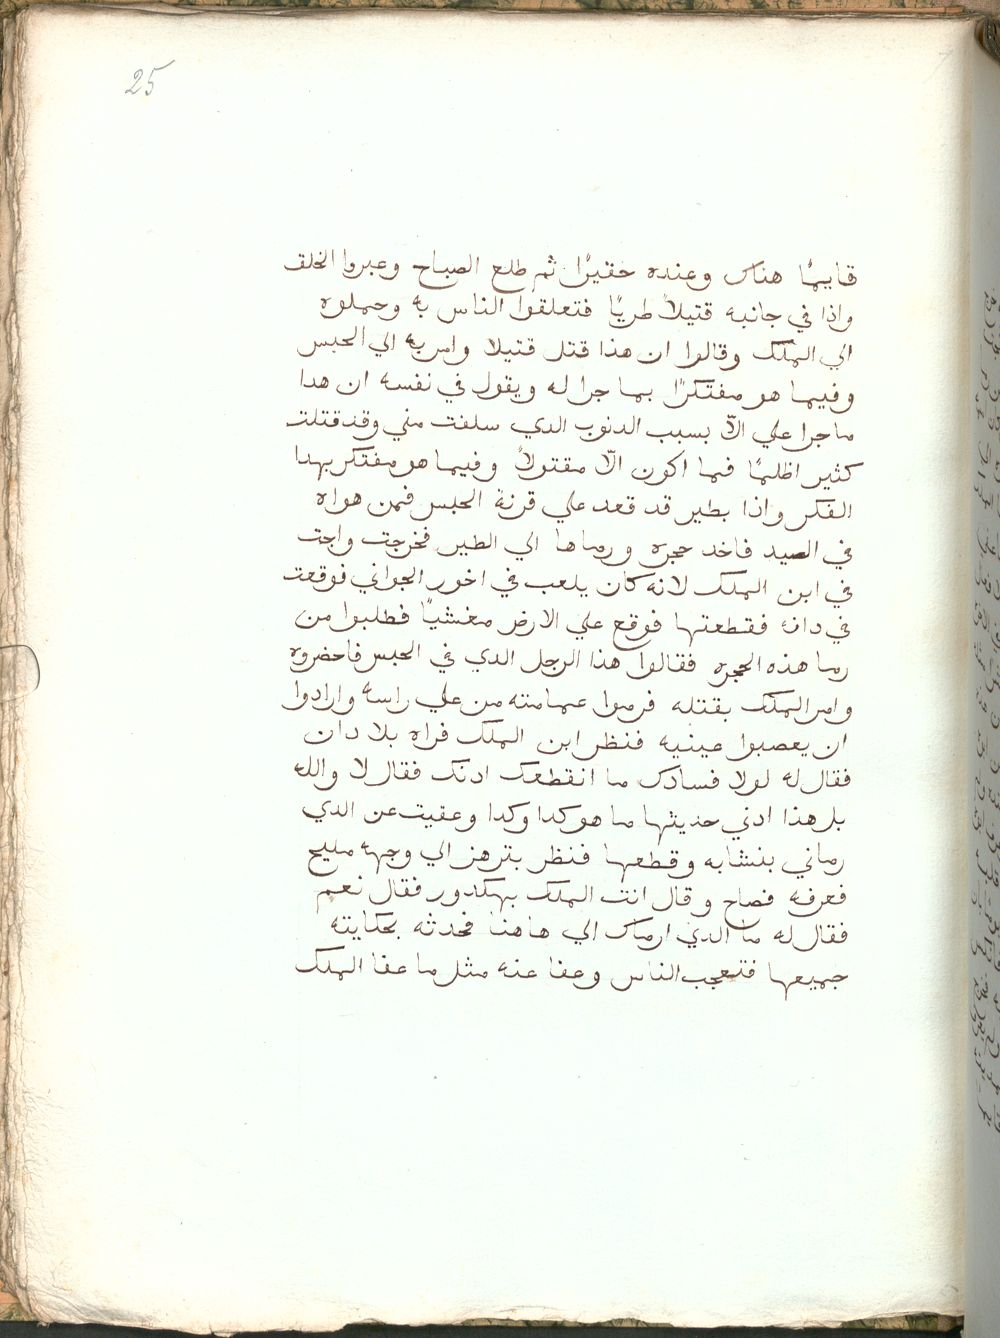 25
قايمًا هناك وعنده حقيرًا ثم طلع الصباح وعبروا الخلق
واذا في جانبه قتيلاً طريًا فتعلقوا الناس به وحملوه
الي الملك وقالوا ان هذا قتل قتيلا وامر به الي الحبس
وفيما هو مفتكرًا بما جرا له ويقول في نفسه ان هدا
ما جرا علي الاّ بسبب الدنوب الدي سلفت مني وقد قتلت
كثير اظلمًا فما اكون الاّ مقتولاً وفيما هو مفتكر بهدا
الفكر واذا بطير قد قعد علي قرنة الحبس فمن هواه
في الصيد فاخد حجره ورماها الي الطير فخرجت واجت
في ابن الملك لانه كان يلعب في اخور الجواني فوقعت
في دانه فقطعتها فوقع علي الارض مغشيًا فطلبوا من
رما هذه الحجره فقالوا هذا الرجل الدي في الحبس فاحضروه
وامر الملك بقتله فرموا عمامته من علي راسه وارادوا
ان يعصبوا عينيه فنظر ابن الملك فراه بلا دان
فقال له لولا فسادك ما انقطعك ادنك فقال لا والله
بل هذا ادني حديثها ما هو كدا وكدا وعفيت عن الدي
رماني بنشابه وقطعها فنظر بترهز الي وجهه مليح
فعرفه فصاح وقال انت الملك بهكدور فقال نعم
فقال له ما الدي ارماك الي هاهنا فحدثه بحكايته
جميعها فتعجب الناس وعفا عنه مثل ما عفا الملك